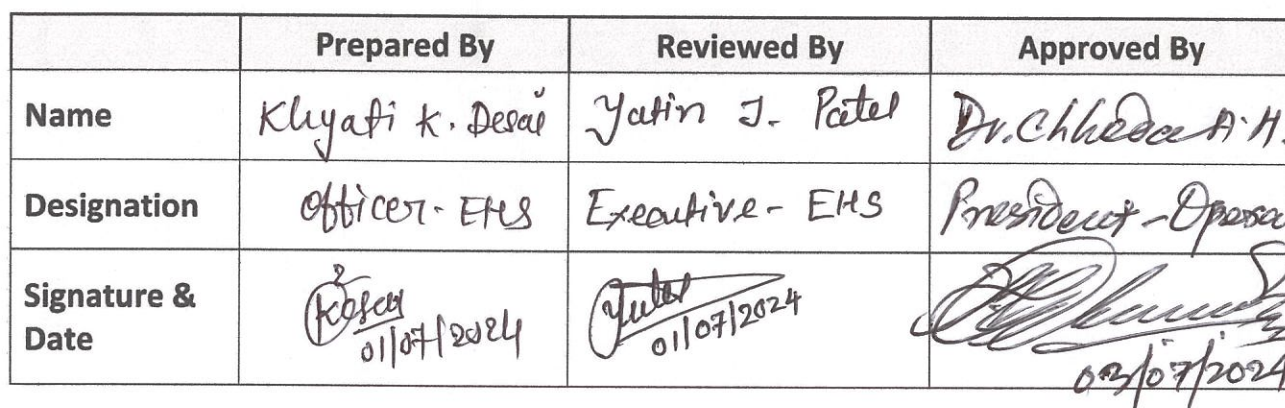 Prepared By Reviewed By Approved By
Name Khyati K. Desai Yatin J. Patel Dr. Chheda A.H.
Designation Officer - EHS Executive - EHS President - Opera
Signature & 01/07/2024 01/07/2024
Date 03/07/2024